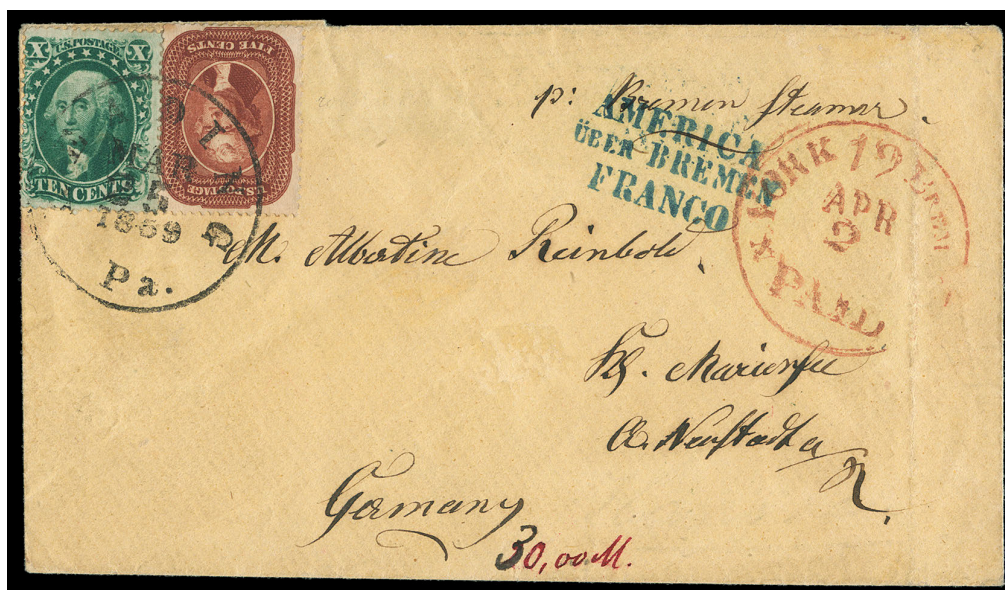 X U.S. POSTAGE X
TEN CENTS
FIVE CENTS
U.S. POSTAGE
MAR
25
1859
Pa.
p: Bremen Steamer.
AMERICA
ÜBER BREMEN
FRANCO
YORK 12
APR
2
PAID
M. Albertine Reinbold.
Mariensee
a. Neustadt a/R.
Germany
30,00M.